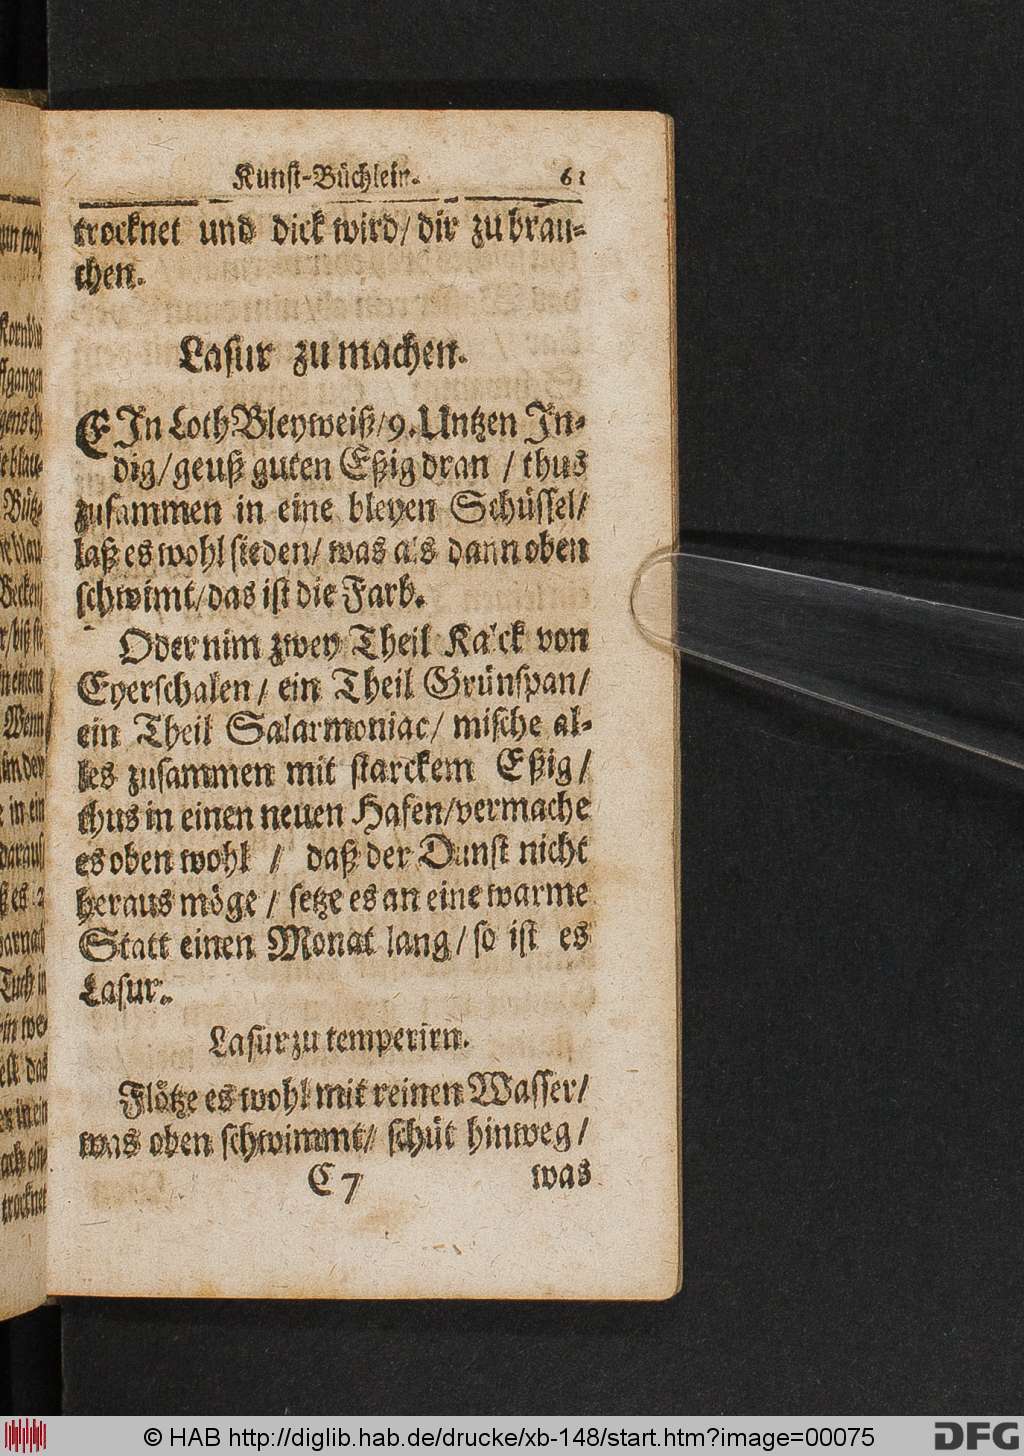 Kunst-Büchlein. 61
trocknet und dick wird/ dir zu brau-
chen.
Lasur zu machen.
EIn Loth Bleyweiß/ 9. Untzen In-
dig/ geuß guten Eßig dran / thus
zusammen in eine bleyen Schüssel/
laß es wohl sieden/ was als dann oben
schwimt/ das ist die Farb.
Oder nim zwey Theil Kalck von
Eyerschalen/ ein Theil Grünspan/
ein Theil Salarmoniac/ mische al-
les zusammen mit starckem Eßig/
thus in einen neuen Hafen/ vermache
es oben wohl / daß der Dunst nicht
heraus möge / setze es an eine warme
Statt einen Monat lang/ so ist es
Lasur.
Lasur zu temperirn.
Flötze es wohl mit reinen Wasser/
was oben schwimmt/ schüt hinweg/
C 7 was
© HAB http://diglib.hab.de/drucke/xb-148/start.htm?image=00075
DFG